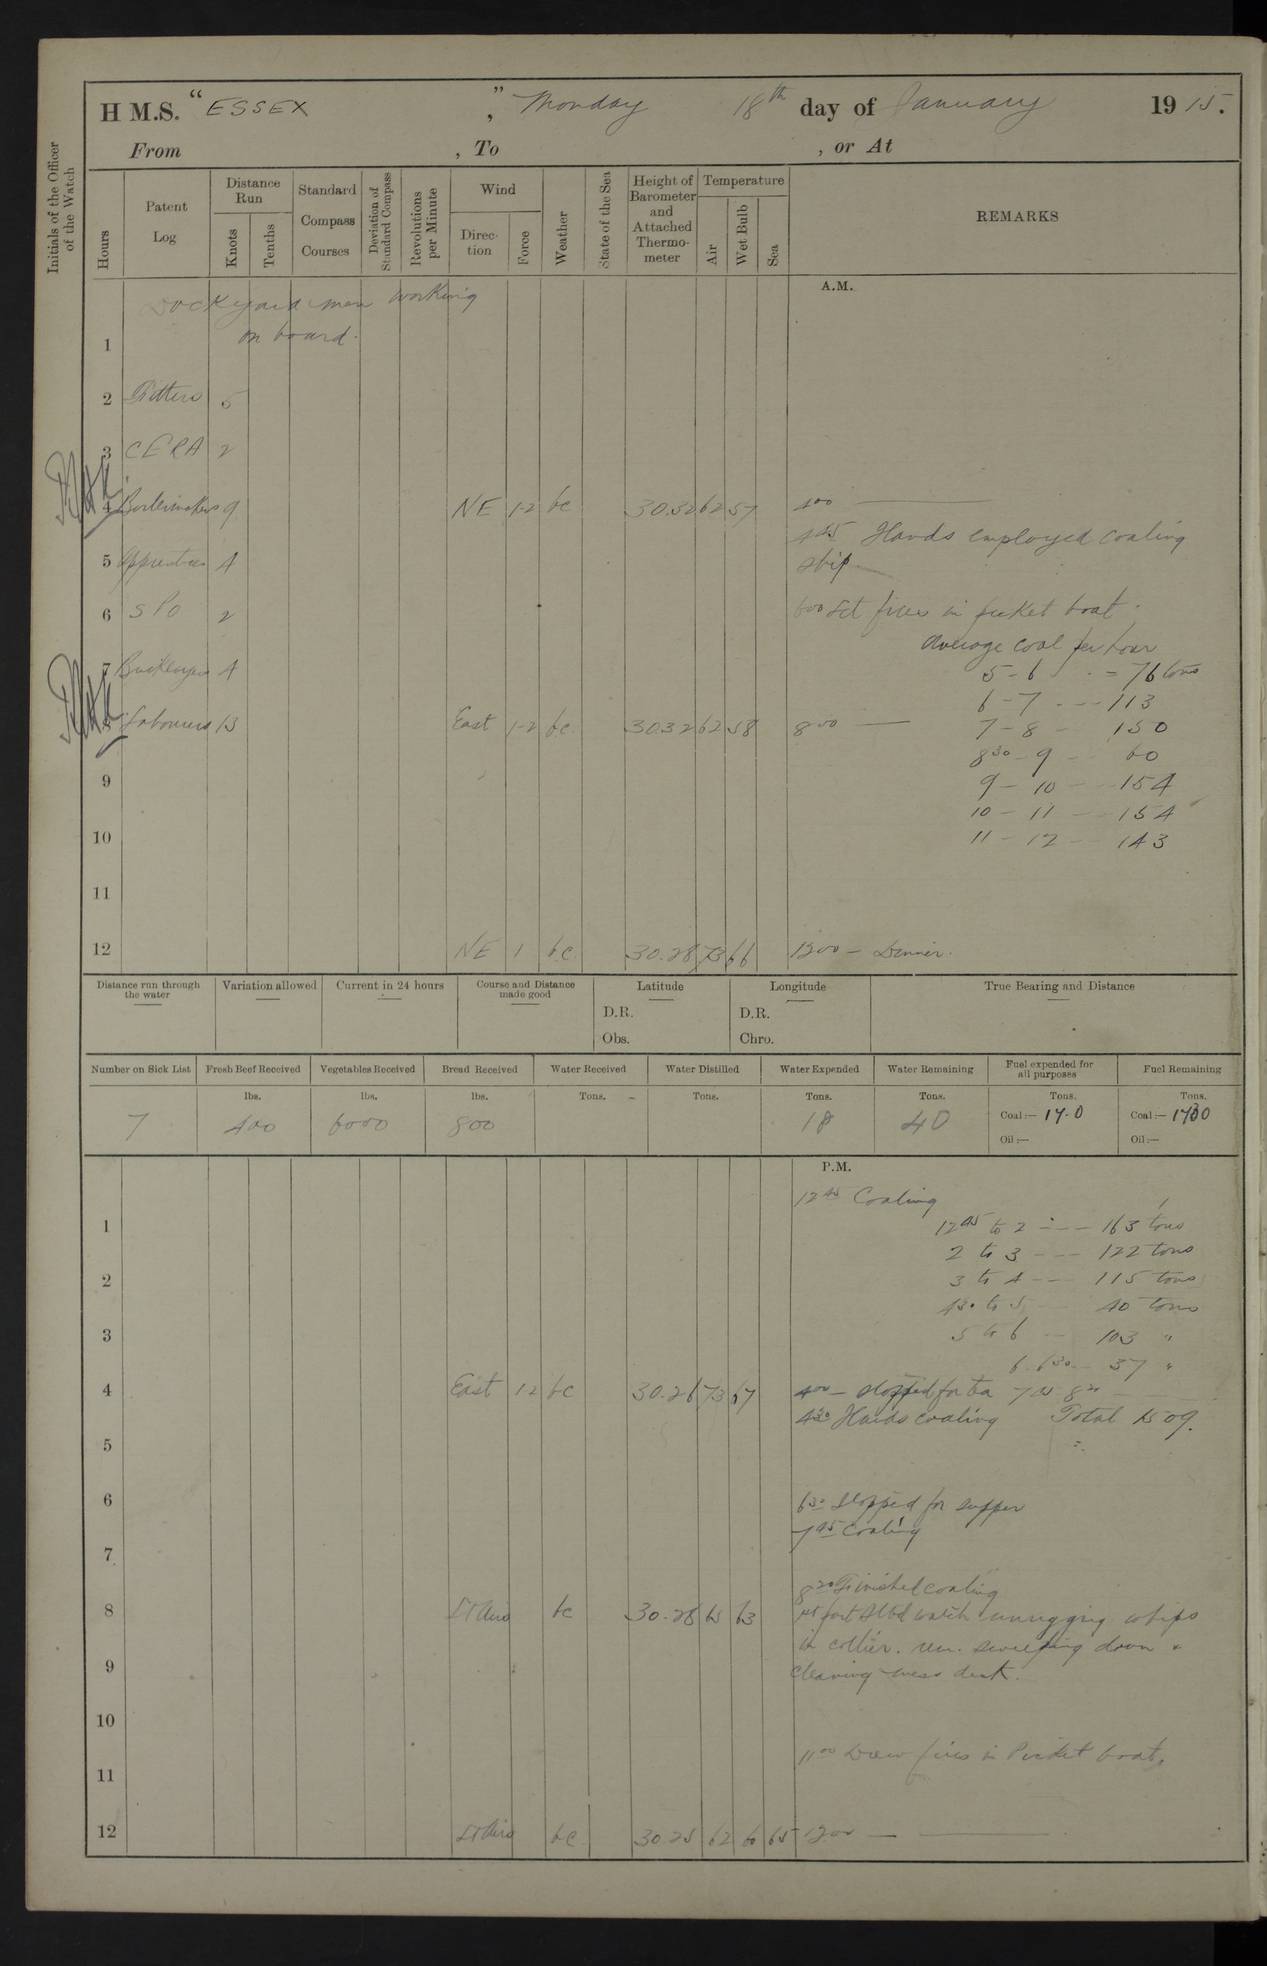 H M.S. " ESSEX ", Monday 18th day of January 1915.
From , To , or At
Initials of the Officer of the Watch
Hours
Patent Log
Distance Run
Knots
Tenths
Standard Compass Courses
Deviation of Standard Compass
Revolutions per Minute
Wind
Direc-tion
Force
Weather
State of the Sea
Height of Barometer and Attached Thermo-meter
Temperature
Air
Wet Bulb
Sea
REMARKS
A.M.
Dockyard men working
on board.
1
2 Fitters 5
3 CERA 2
4 Boilermakers 9 NE 1-2 bc 30.32 62 57 4 00
4 45 Hands employed coaling
ship
5 Apprentices 4
6 SPO 2 6 00 Set fires in picket boat.
Average coal per hour
7 4 5-6 = 76 tons
6-7 --- 113
8 Labourers 13 East 1-2 bc 30.32 62 58 8 00 7-8 - 150
8 30 - 9 -- 60
9 9-10 --- 154
10-11 --- 154
10 11-12 -- 143
11
12 NE 1 bc 30.28 73 66 12 00 - Dinner.
Distance run through the water
Variation allowed
Current in 24 hours
Course and Distance made good
Latitude
D.R.
Obs.
Longitude
D.R.
Chro.
True Bearing and Distance
Number on Sick List
Fresh Beef Received
Vegetables Received
Bread Received
Water Received
Water Distilled
Water Expended
Water Remaining
Fuel expended for all purposes
Fuel Remaining
lbs. lbs. lbs. Tons. Tons. Tons. Tons. Tons. Tons.
7 400 6000 800 18 40 Coal:— 17.0 Coal:— 1730
Oil:— Oil:—
P.M.
12 45 Coaling
1 12 45 to 2 --- 163 tons
2 to 3 --- 122 tons
2 3 to 4 --- 115 tons
4 30 to 5 40 tons
3 5 to 6 -- 103 "
6 - 6 30 -- 37 "
4 East 1-2 bc 30.26 73 67 4 00 - stopped for tea 7 45 8 20
4 30 Hands coaling Total 1509.
5
6 6 30 Stopped for supper
7 45 Coaling
7
8 20 Finished coaling
8 bc 30.28 65 63 1st part Stbd watch unrigging whips
in collier. rem. sweeping down &
9 cleaning mess deck.
10
11 00 Drew fires in Picket boat.
11
12 bc 30.25 62 60 65 12 00